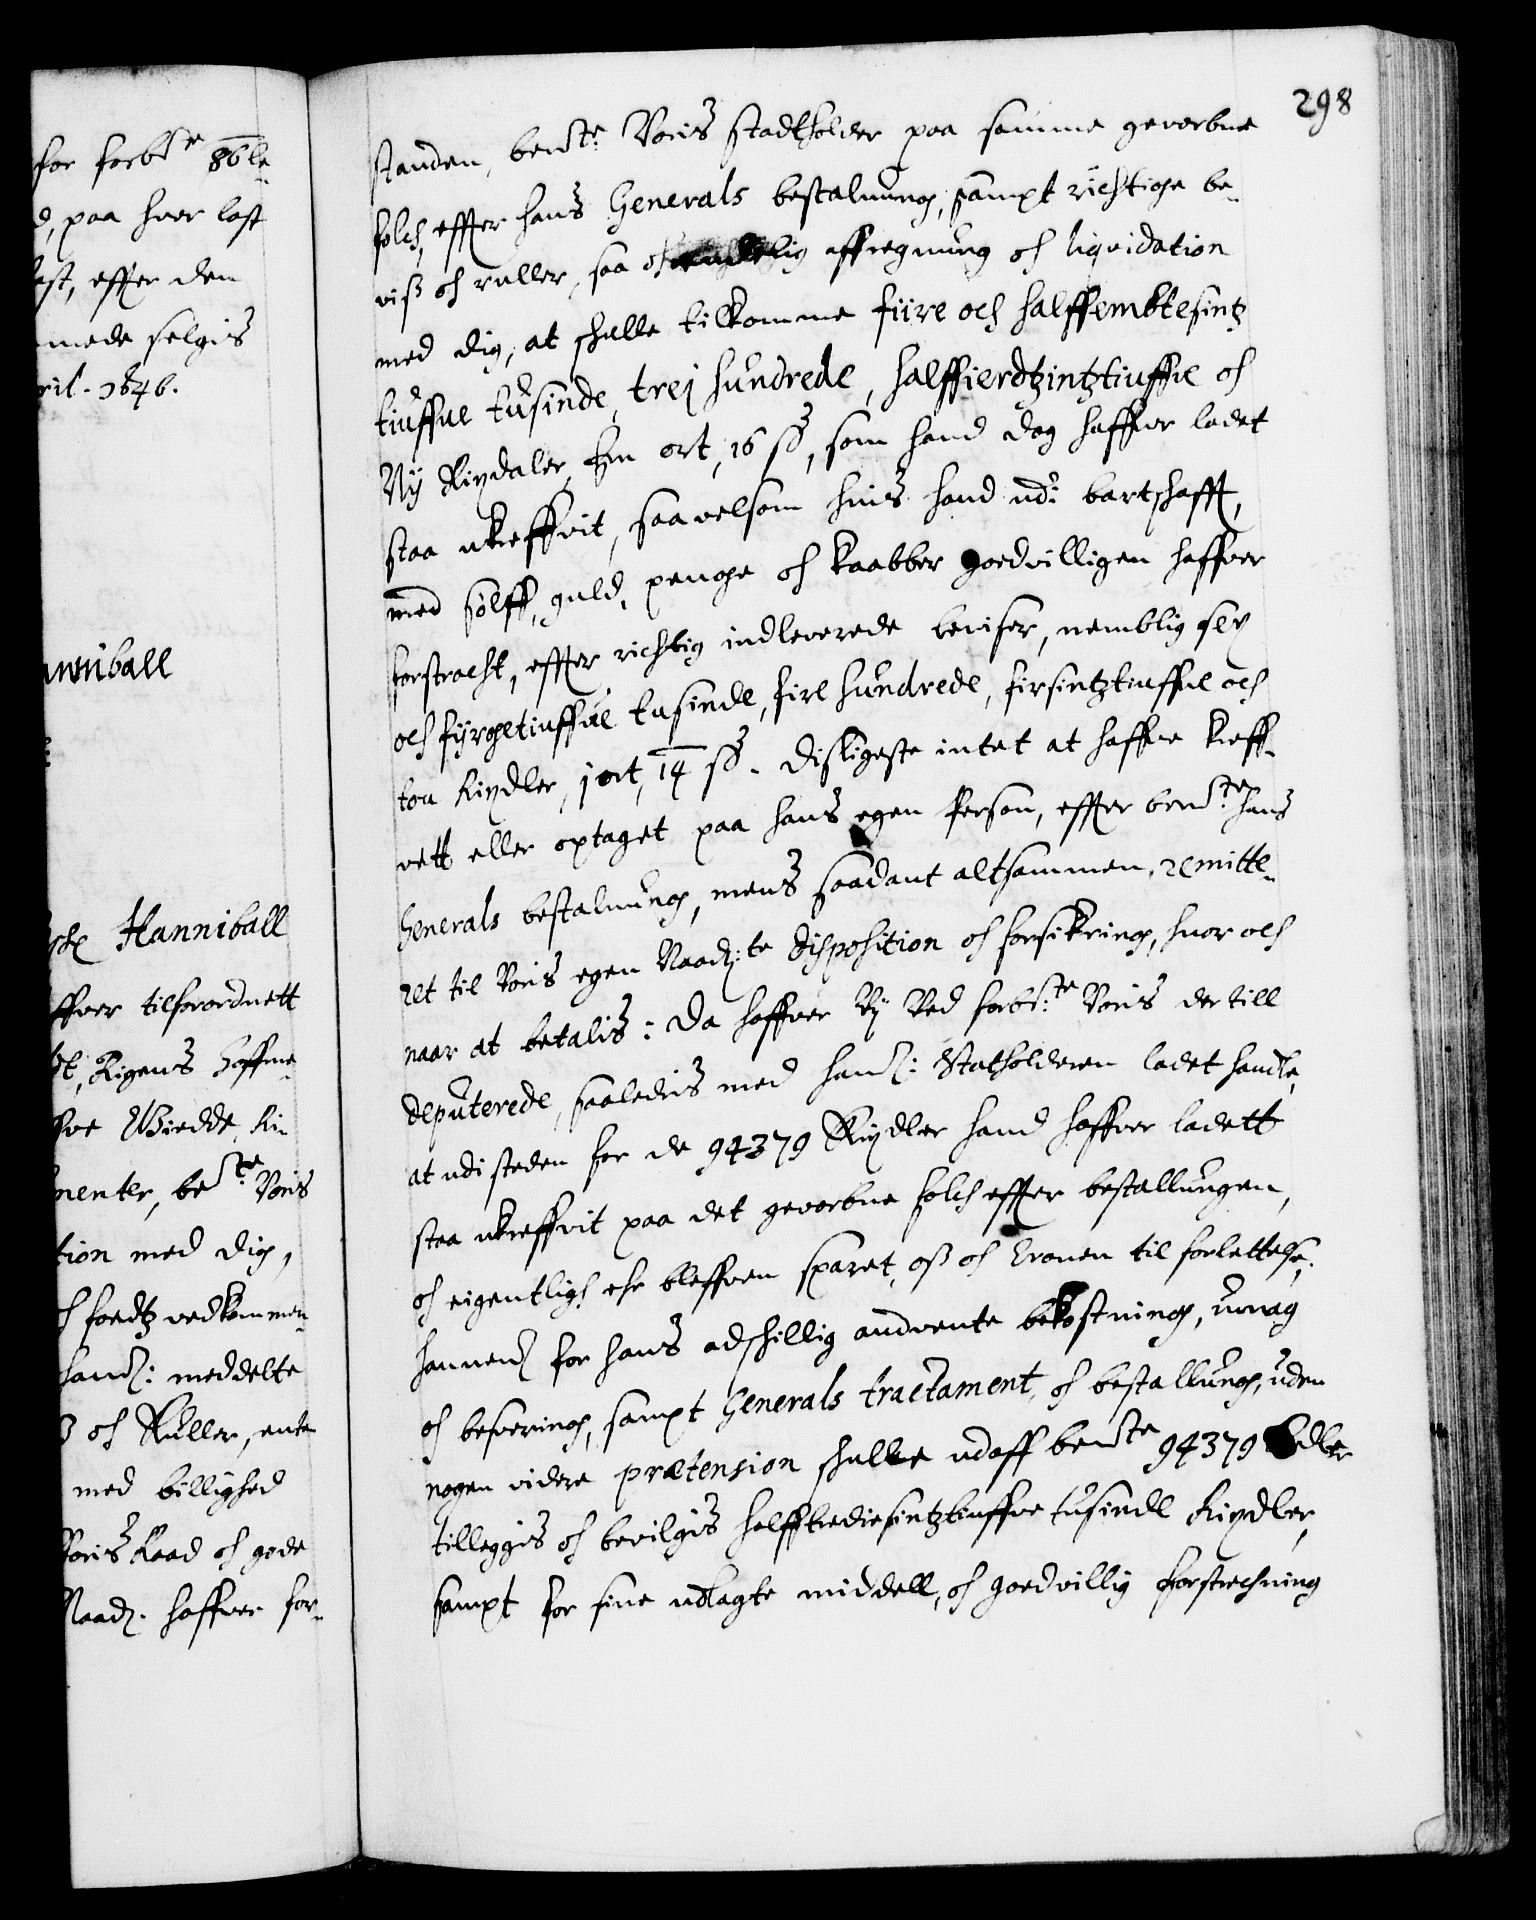 for forb.te 86 le-
d, paa huer last
ast, effter den
mede selgis
ril. 1646.
nnuball
ske Hanniball
ffuer tilforordnett
bt, Rigens Hoffme-
ffue Wiedde, Ri-
menter, be.te Voris
tion med dig,
h foedtz vedkommen-
hand: meddelte
ß och Ruller, ente
med billighed
Voris Raad och gode
Naad. haffuer for-
298
standen, bem.te Voris Stadtholder paa samme geworbne
folch, effter hans Generals bestalnung, sampt richtige be-
viß och ruller, saa och endelig affregnung och liquidation
med dig, at skulle tilkomme fiire och halffembtesintz
tiuffue tusinde, trej hundrede, halffierdtzintztiuffue och
Nij Rixdaler, En ort, 16 ß, som hand dog haffuer ladet
staa ukreffuit, saavelsom huis hand udi bartschafft,
med sølff, guld, penge och kaabber goedvilligen haffuer
forstracht, effter richtig indleverede beviser, nemblig sex
och fyrgetiuffue tusinde, fire hundrede, firsintztiuffue och
tou Rixdler, 1 ort, 14 ß. Disligeste intet at haffue kreff-
vett eller optaget paa hans egen Person, effter bem.te hans
Generals bestalnung, mens saadant altsammen, remitte-
ret til Voris egen Naad:te disposition och forsikring, huor och
naar at betalis: Da haffuer Vij Ved forb.te Voris der till
deputerede, saaledis med hand: Statholderen ladet handle,
at udi steden for de 94379 Rixdler hand haffuer ladett
staa ukreffvit paa det geworbne folch effter bestallungen,
och eigentligh ehr bleffuen sparet, oß och Cronen til forlettelse,
hannem for hans adskillig anvente bekostning, umag
och besvering, sampt Generals tractament, och bestallung, uden
nogen videre prætension skulle udaff bem.te 94379 Rdler
tilleggis och bevilgis halfftrediesintztiuffue tusinde Rixdler,
sampt for sine udlagte middell, och goedvillig forstrechning